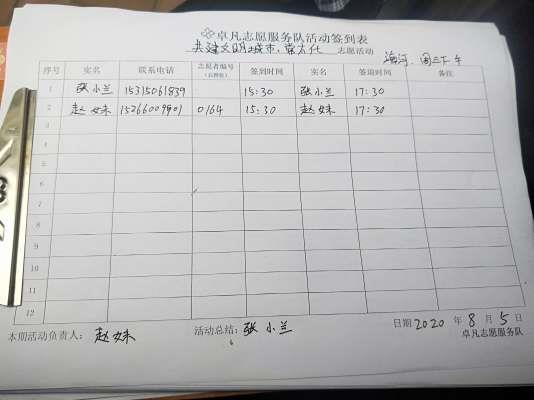 卓凡志愿服务队活动签到表
共建文明城市,常态化 志愿活动
海河 周三下午
序号 实名 联系电话 志愿者编号 签到时间 实名 签退时间 备注
1 张小兰 15315061839 15:30 张小兰 17:30
2 赵妹 15266009901 0164 15:30 赵妹 17:30
3
4
5
6
7
8
9
10
11
12
本期活动负责人: 赵妹 活动总结: 张小兰 日期 2020 年 8 月 5 日
卓凡志愿服务队